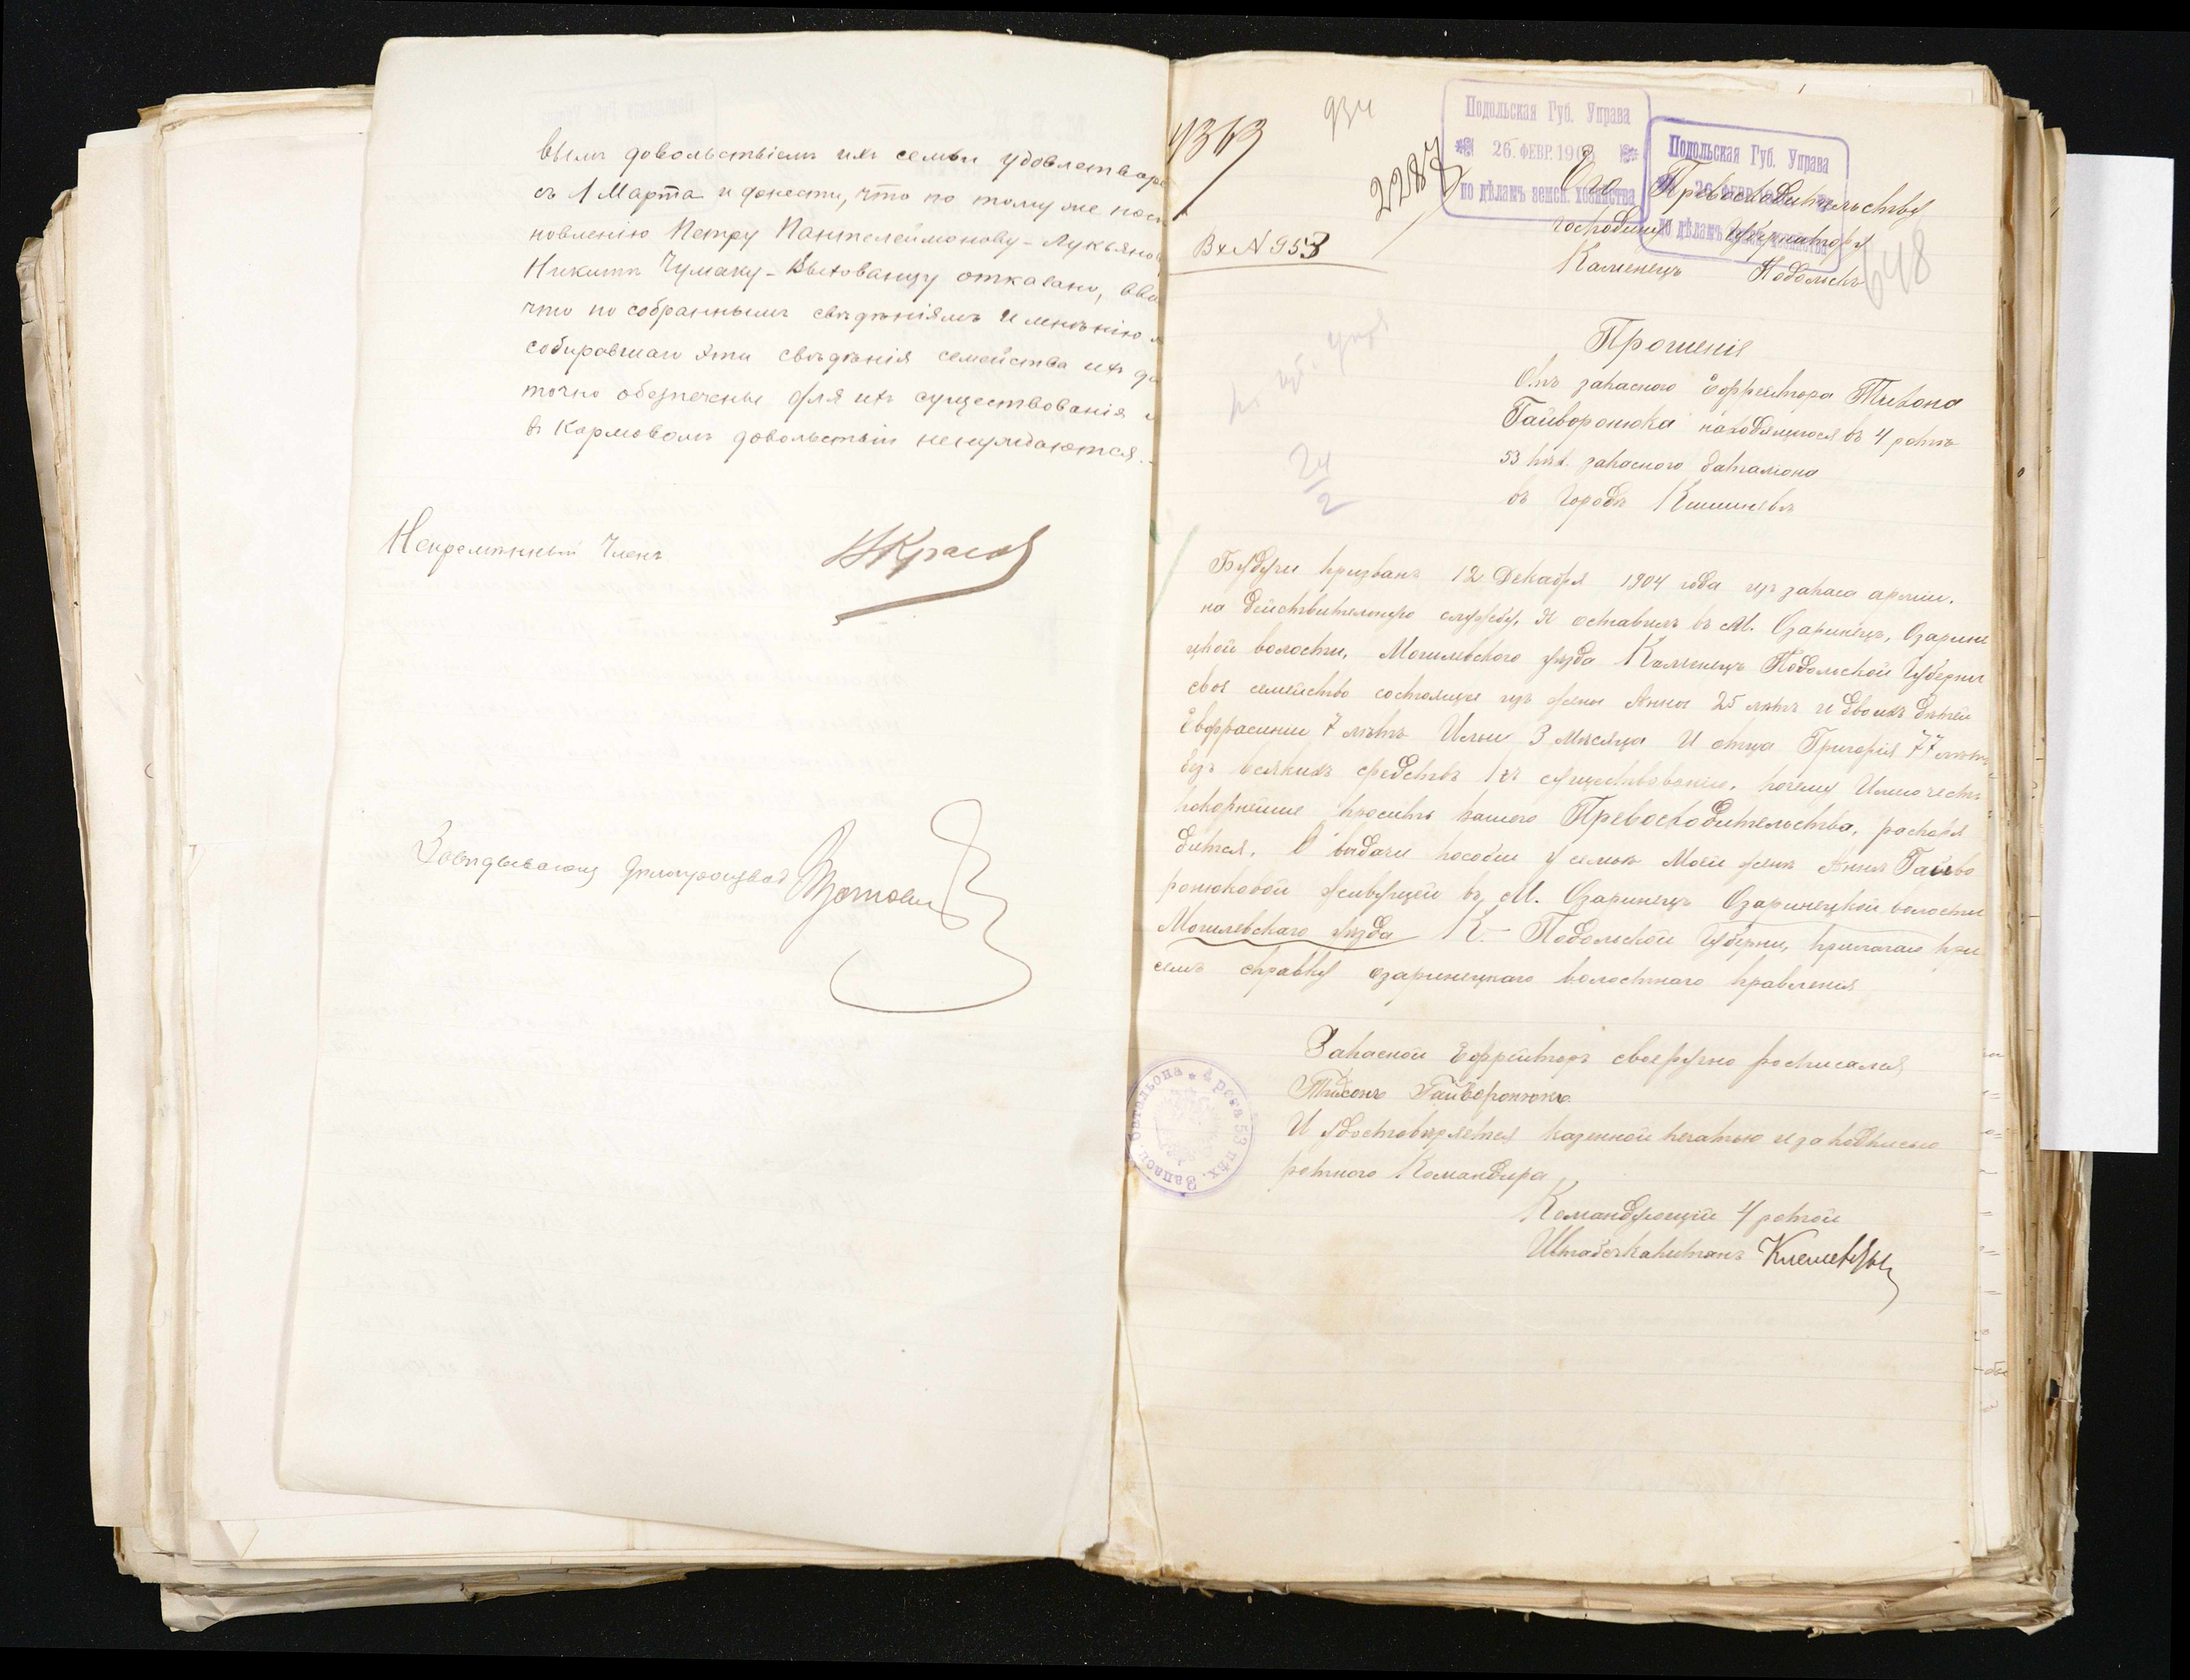 вымъ довольствіемъ ихъ семьи удовлетворе
съ 1 Марта и донести, что по тому же пост
новленію Петру Пантелеймонову-Лукьянов
Никитѣ Чумаку-Выхованцу отказано, вви
что по собраннымъ свѣдѣніямъ и мнѣнію
собиравшаго эти свѣдѣнія семейства ихъ до
точно обезпечены для ихъ существованія и
въ кормовомъ довольствіи ненуждаются.
Непремѣнный Членъ
Завѣдывающ дѣлопроизвод
4363
934
2287
Подольская Губ. Управа
26. ФЕВР. 190
по дѣламъ земск. хозяйства
Подольская Губ. Управа
26 ФЕВР
по дѣламъ земск. хозяйства
Вх N 953
Его Превосходительству
Господину Губернатору
Каменецъ Подольскъ
648
Прошеніе
Отъ запасного Ефрейтора Тихона
Гайворонюка находящегося въ 4 ротѣ
53 пѣх. запасного баталіона
въ городѣ Кишиневѣ
24
2
Будучи призванъ 12 Декабря 1904 года изъ запаса арміи.
на действительную службу, Я оставилъ въ М. Озаринецъ, Озарине
цкой волости, Могилевского уѣзда Каменецъ Подольской Губерни
своё семейство состоящее изъ жены Анны 25 лѣтъ и двоихъ дѣтей
Евфросинии 7 лѣтъ Ильи 3 мѣсяца И отца Григорія 77 лѣтъ
безъ всякихъ средствъ къ существованію, почему Имею честь
покорнейше просить вашего Превосходительства, распоря
дится. О выдачи пособии у семьѣ Моей женѣ Аннѣ Гайво
ронюковой живущей въ М. Озаринецъ Озаринецкой волости
Могилевскаго уѣзда К.- Подольской Губерни, прилагаю при
семъ справку озаринецкаго волостного правленія
Запасной Ефрейторъ своеручно росписался
Тихонъ Гайворонюкъ
И удостовѣряется казенной печатью и за подписью
ротного Командира
Командующій 4 ротой
Штабсъ капитанъ
4 рота 53 пѣх. Запасн. батальона